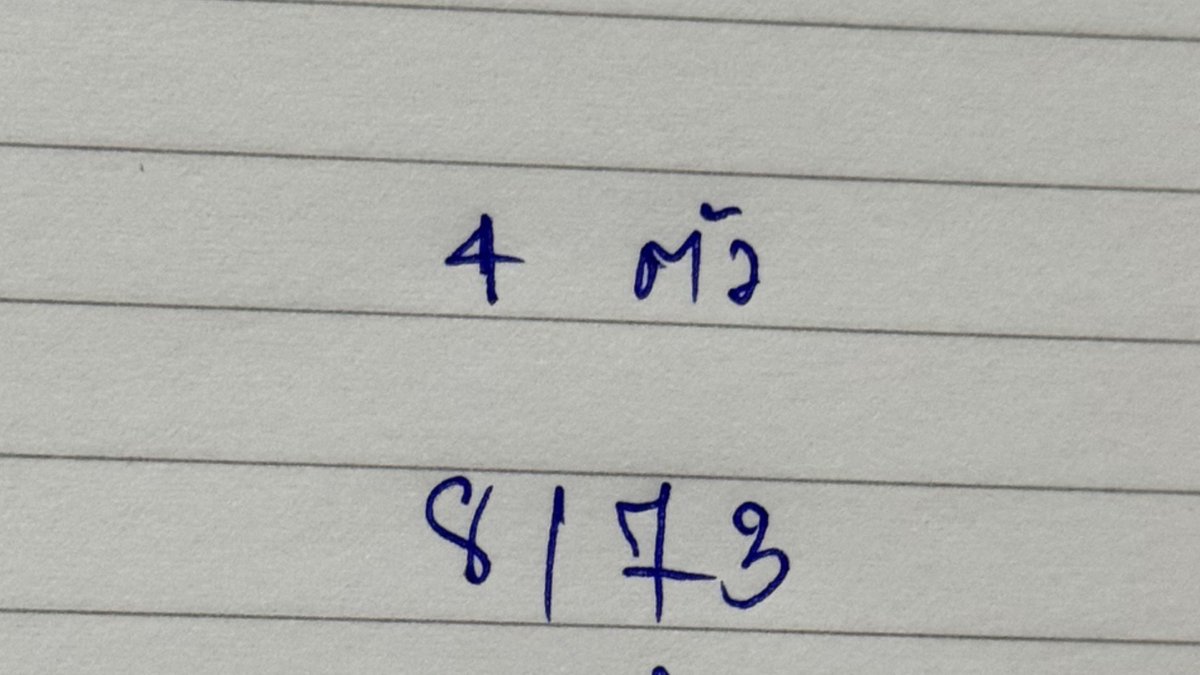 4 ตัว
8173